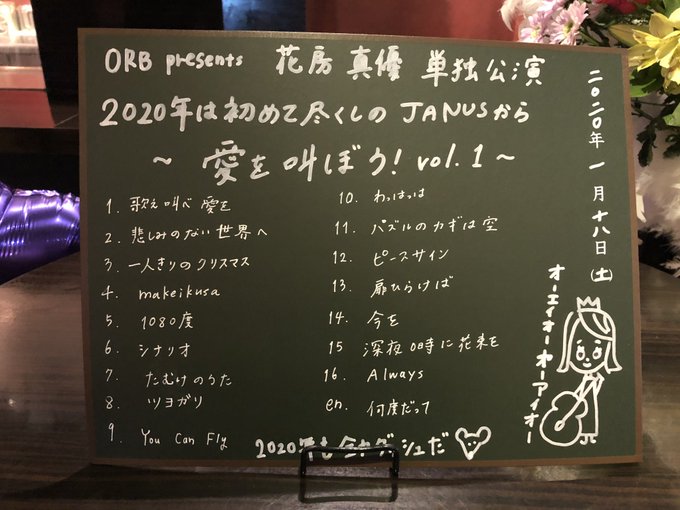 ORB presents 花房 真優 単独公演
2020年は初めて尽くしの JANUSから
～ 愛を叫ぼう! vol.1 ～
1. 歌え叫べ愛を
2. 悲しみのない世界へ
3. 一人きりのクリスマス
4. makeikusa
5. 1080度
6. シナリオ
7. たむけのうた
8. ツヨガリ
9. You Can Fly
10. わっはっは
11. パズルのカギは空
12. ピースサイン
13. 扉ひらけば
14. 今を
15 深夜0時に花束を
16. Always
en. 何度だって
2020年も全力ダッシュだ
二〇二〇年一月十八日(土)
オーエイオーオーアイオー